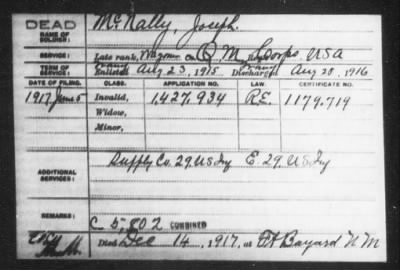 DEAD
NAME OF SOLDIER:
McNally, Joseph.
SERVICE:
Late rank, Wagoner Q M Corps, USA
TERM OF SERVICE:
Enlisted Aug 23, 1915 Discharged Aug 28, 1916
DATE OF FILING. CLASS. APPLICATION NO. LAW. CERTIFICATE NO.
1917 June 5 Invalid, 1,427,934 R.E. 1179,719
Widow,
Minor,
ADDITIONAL SERVICES:
Supply Co. 29, US Inf E. 29, US Inf
REMARKS:
C 5,802 COMBINED
Died Dec 14, 1917, at Ft Bayard N M